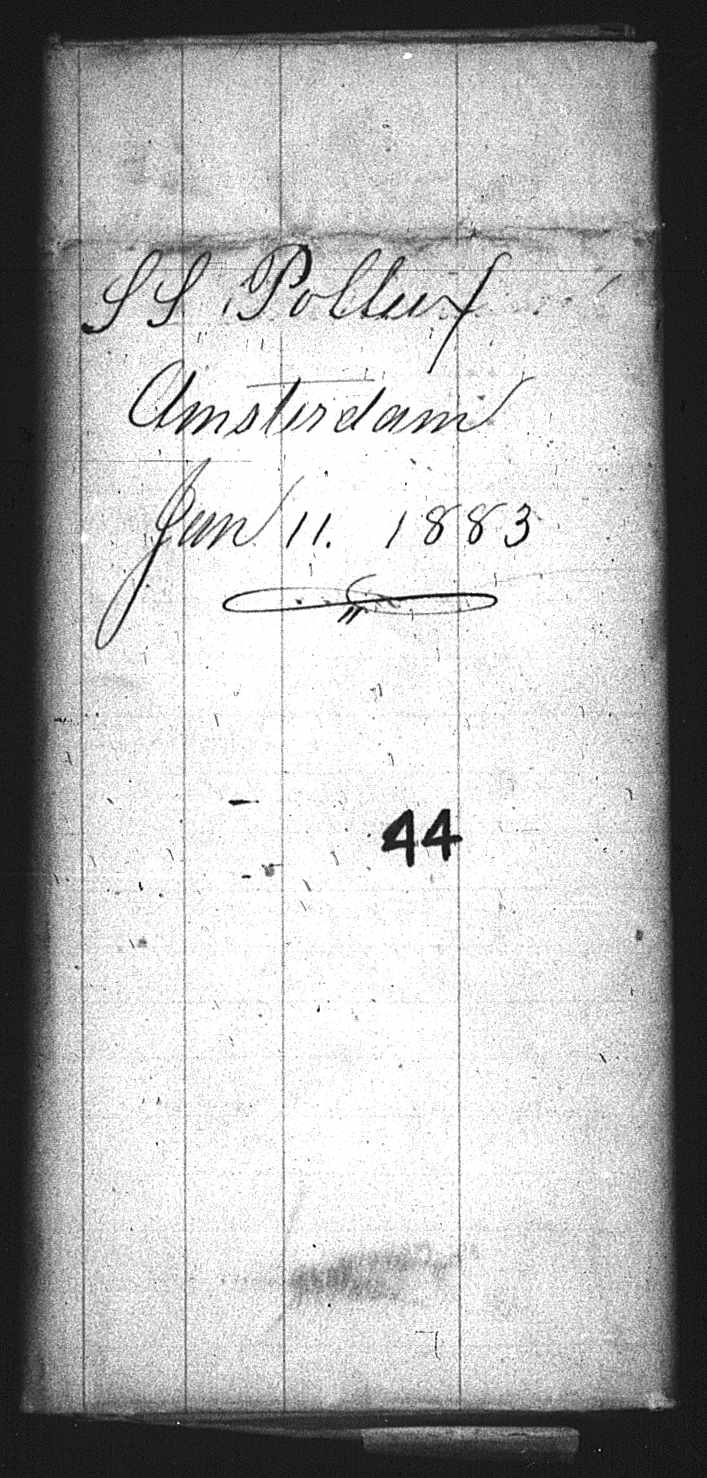 SS Pollux
Amsterdam
Jan 11. 1883
44